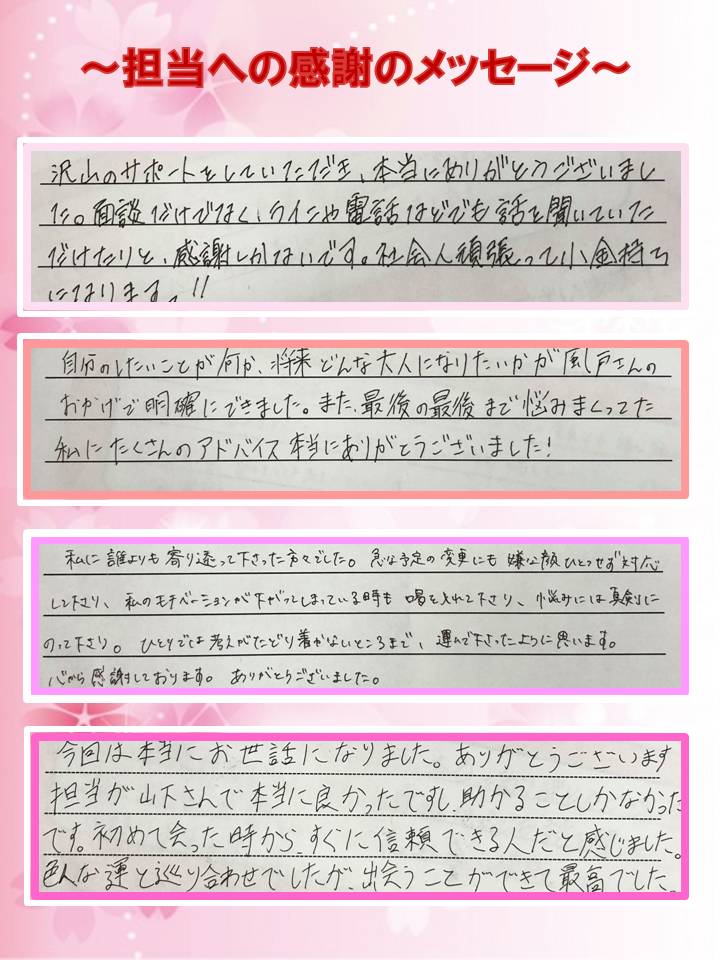 ～担当への感謝のメッセージ～
沢山のサポートをしていただき、本当にありがとうございまし
た。面談だけでなく、ラインや電話などでも話を聞いていた
だけたりと、感謝しかないです。社会人頑張って小金持ち
になります。!!
自分のしたいことが何か、将来どんな大人になりたいかが風戸さんの
おかげで明確にできました。また、最後の最後まで悩みまくってた
私にたくさんのアドバイス本当にありがとうございました!
私に誰よりも寄り添って下さった方々でした。急な予定の変更にも嫌な顔ひとつせず対応
して下さり、私のモチベーションが下がってしまっている時も喝を入れて下さり、悩みには真剣に
のって下さり。ひとりでは考えがたどり着かないところまで、運んで下さったように思います。
心から感謝しております。ありがとうございました。
今回は本当にお世話になりました。ありがとうございます
担当が山下さんで本当に良かったですし、助かることしかなかった
です。初めて会った時から、すぐに信頼できる人だと感じました。
色んな運と巡り合わせでしたが、出会うことができて最高でした。